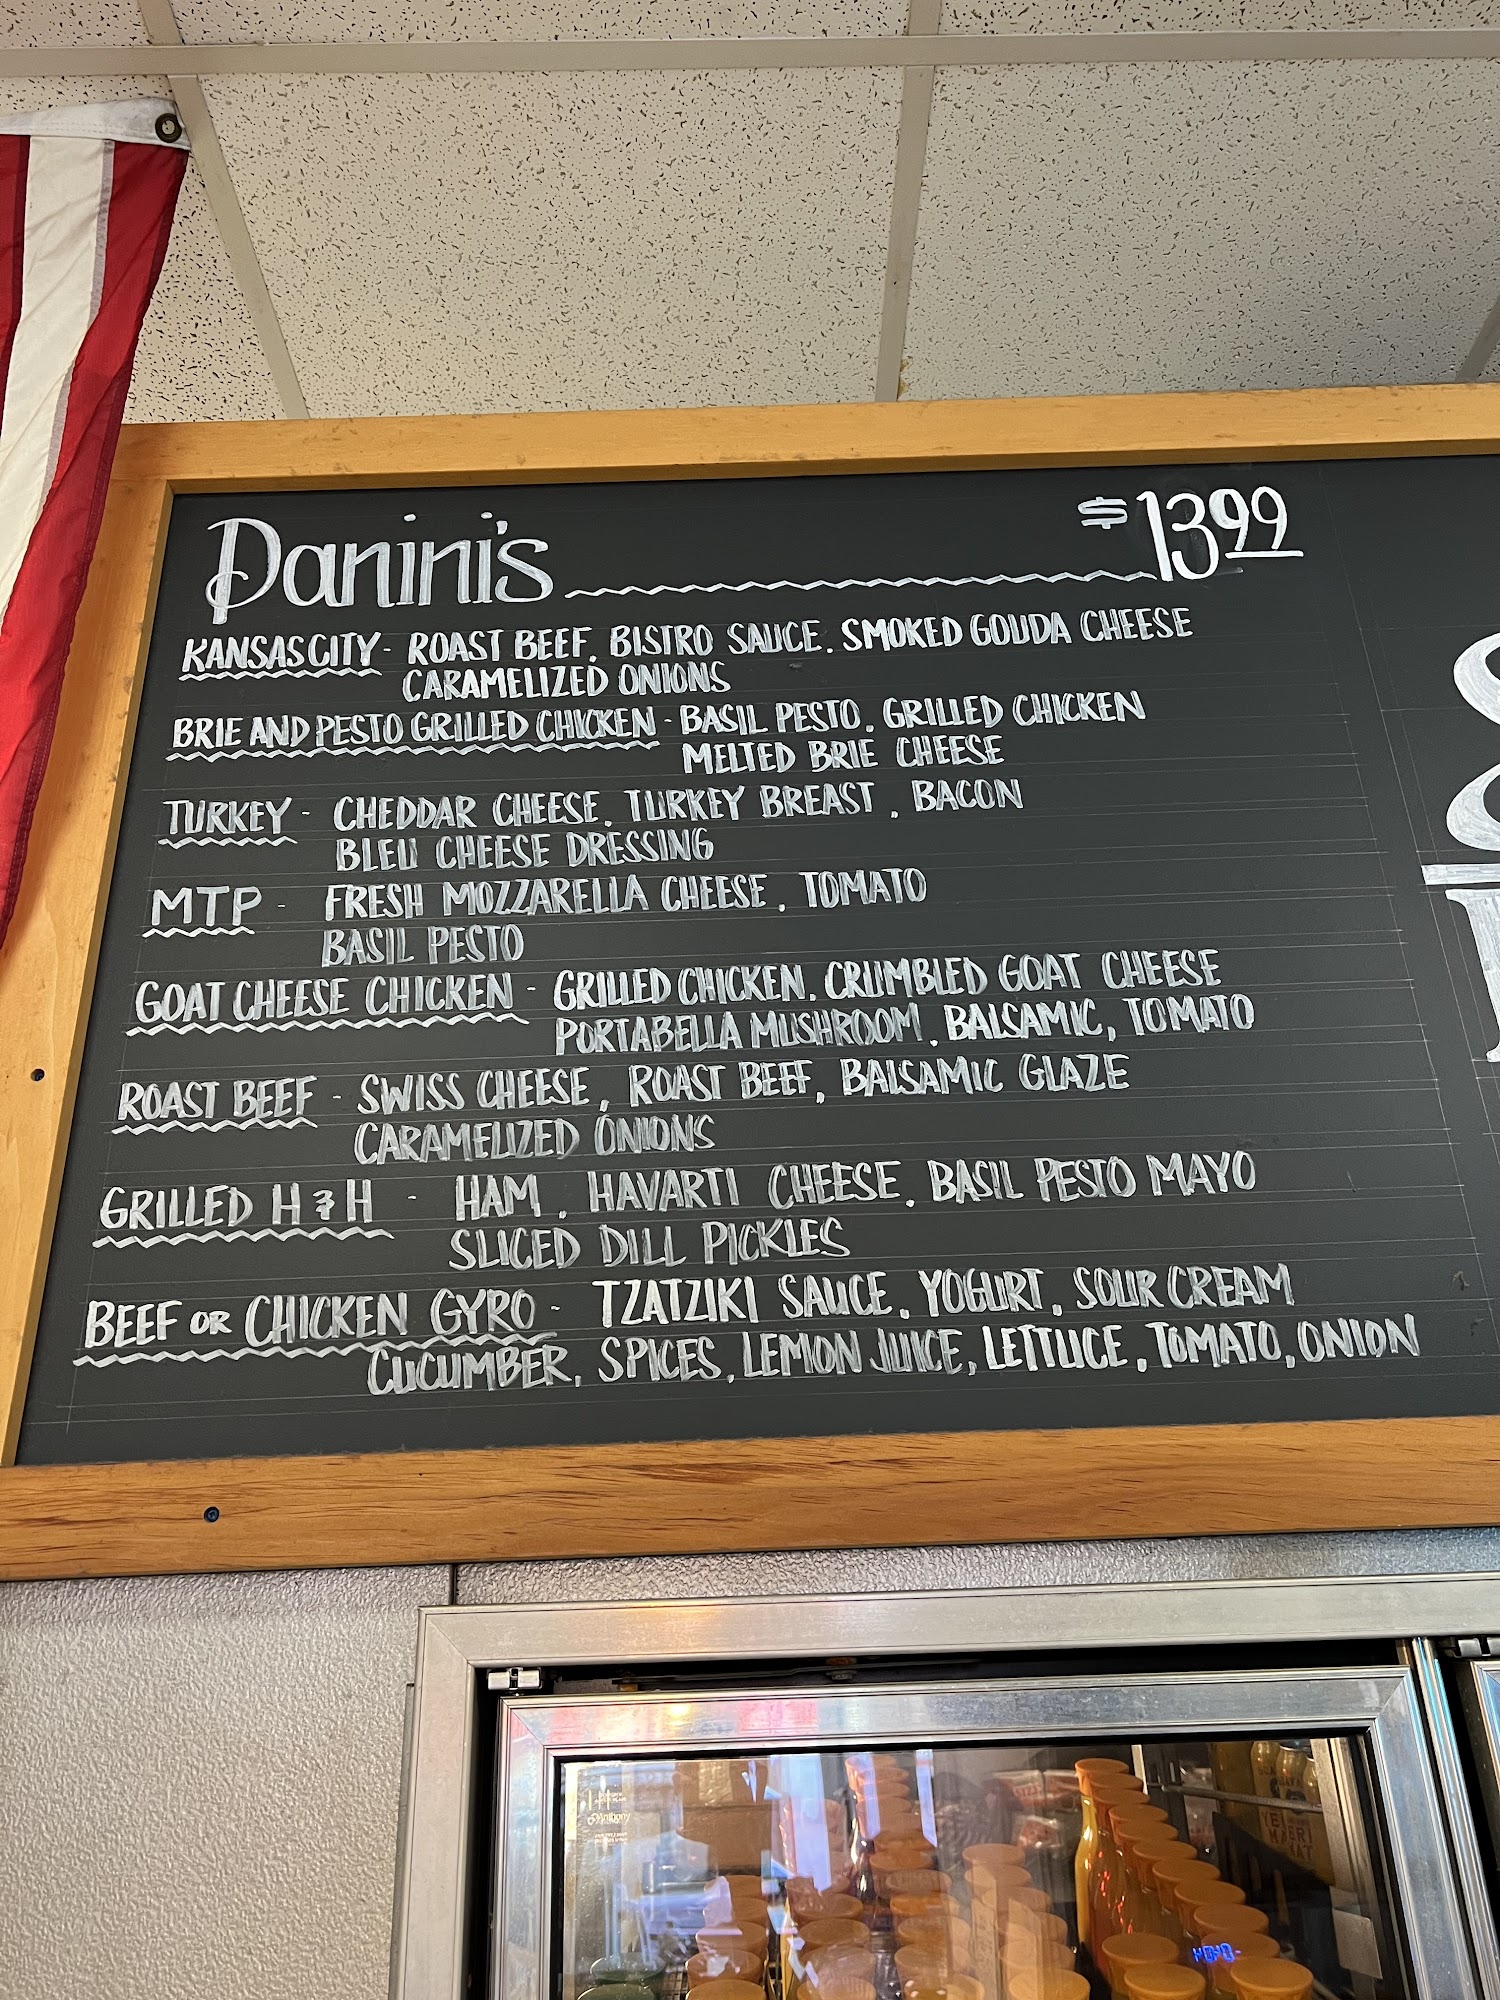 Panini's $13.99
KANSAS CITY - ROAST BEEF, BISTRO SAUCE, SMOKED GOUDA CHEESE
CARAMELIZED ONIONS
BRIE AND PESTO GRILLED CHICKEN - BASIL PESTO, GRILLED CHICKEN
MELTED BRIE CHEESE
TURKEY - CHEDDAR CHEESE, TURKEY BREAST, BACON
BLEU CHEESE DRESSING
MTP - FRESH MOZZARELLA CHEESE, TOMATO
BASIL PESTO
GOAT CHEESE CHICKEN - GRILLED CHICKEN, CRUMBLED GOAT CHEESE
PORTABELLA MUSHROOM, BALSAMIC, TOMATO
ROAST BEEF - SWISS CHEESE, ROAST BEEF, BALSAMIC GLAZE
CARAMELIZED ONIONS
GRILLED H & H - HAM, HAVARTI CHEESE, BASIL PESTO MAYO
SLICED DILL PICKLES
BEEF OR CHICKEN GYRO - TZATZIKI SAUCE, YOGURT, SOUR CREAM
CUCUMBER, SPICES, LEMON JUICE, LETTUCE, TOMATO, ONION